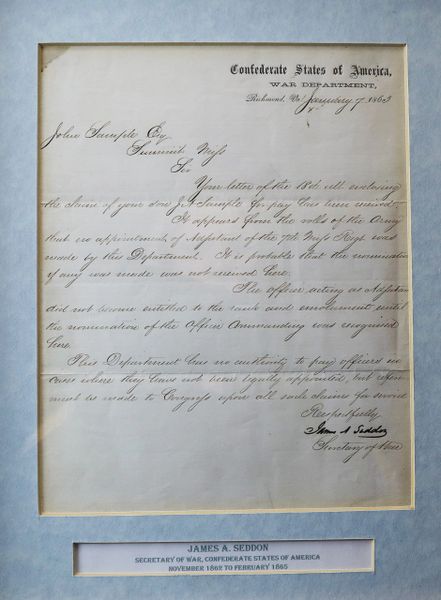 Confederate States of America,
WAR DEPARTMENT,
Richmond, Va. January 7 1863
John Sample Esq
Summit Miss
Sir
Your letter of the 18th ult enclosing
the claim of your son J. Sample for pay has been received
It appears from the rolls of the Army
that no appointment of Adjutant of the 7th Miss Regt was
made by this Department. It is probable that the nomination
if any was made was not received here.
The officer acting as Adjutant
did not become entitled to the rank and emoluments until
the nomination of the Officer Commanding was recognised
here.
This Department has no authority to pay officers in
cases where they have not been legally appointed, but
must be made to Congress upon all such claims for service
Respectfully
James A Seddon
Secretary of War
JAMES A. SEDDON
SECRETARY OF WAR, CONFEDERATE STATES OF AMERICA
NOVEMBER 1862 TO FEBRUARY 1865